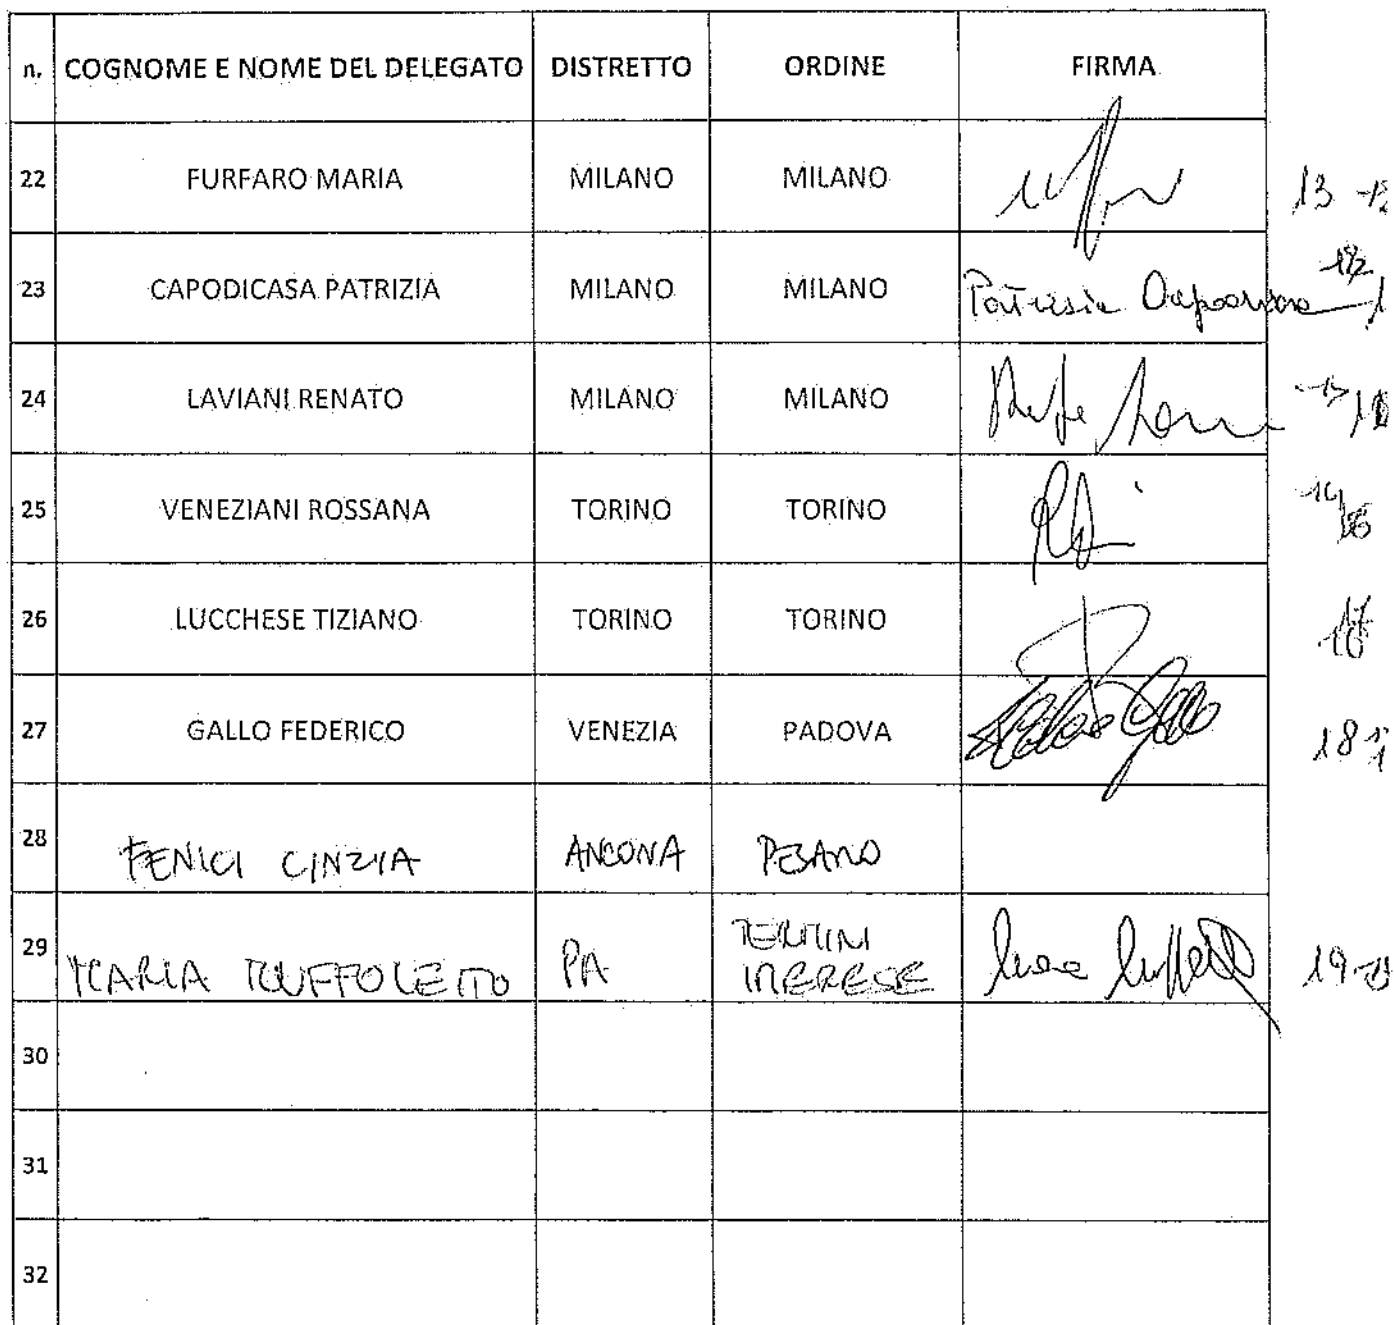 n. COGNOME E NOME DEL DELEGATO DISTRETTO ORDINE FIRMA
22 FURFARO MARIA MILANO MILANO 13
23 CAPODICASA PATRIZIA MILANO MILANO Patrizia
24 LAVIANI RENATO MILANO MILANO
25 VENEZIANI ROSSANA TORINO TORINO
26 LUCCHESE TIZIANO TORINO TORINO
27 GALLO FEDERICO VENEZIA PADOVA 18
28 FENICI CINZIA ANCONA PESARO
29 MARIA PA TERMINI IMERESE 19
30
31
32